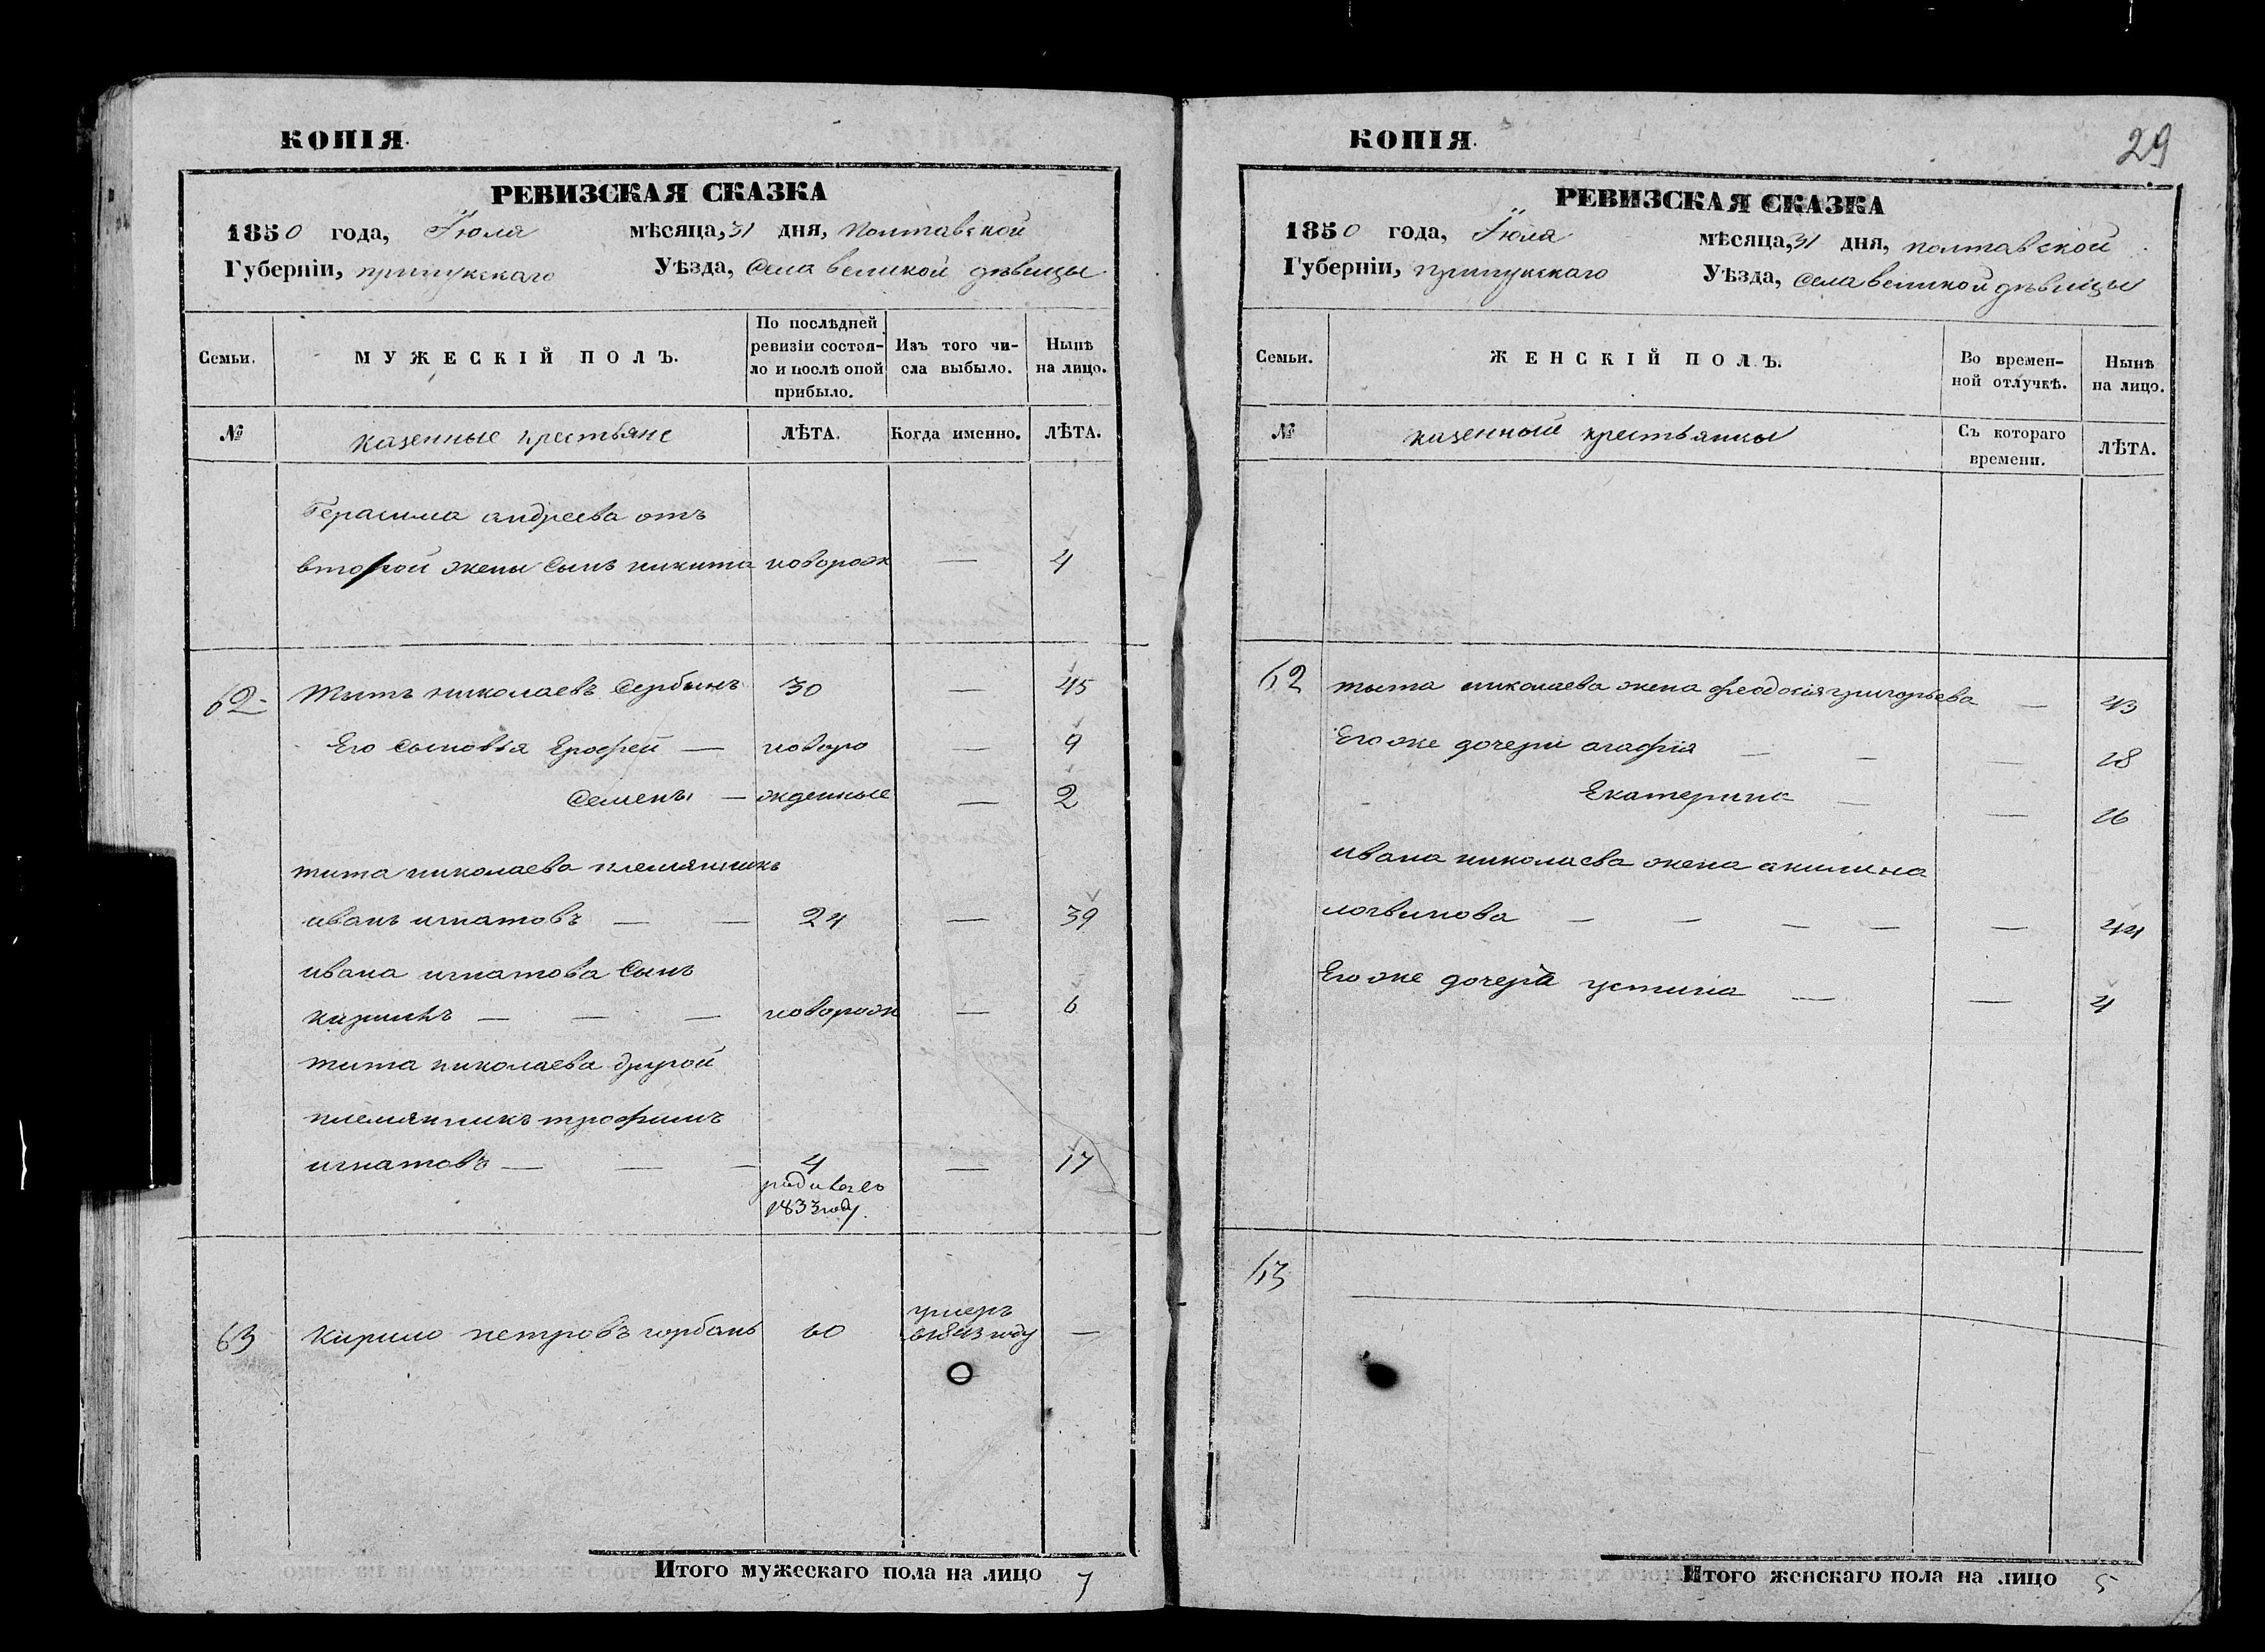 КОПІЯ.
РЕВИЗСКАЯ СКАЗКА
1850 года, Іюля мѣсяца, 31 дня, полтавской
Губерніи, прилукскаго Уѣзда, села великой дѣвицы
Семьи. МУЖЕСКІЙ ПОЛЪ. По послѣдней ревизіи состояло и послѣ оной прибыло. Изъ того числа выбыло. Нынѣ на лицо.
№ казенные крестьяне ЛѢТА. Когда именно. ЛѢТА.
Герасима андреева отъ
второй жены сынъ никита новорож — 4
62 Титъ николаевъ Сербинъ 30 — 45
Его сыновія Ерофей — новоро — 9
Семенъ — жденные — 2
тита николаева племянникъ
иванъ игнатовъ — — 24 — 39
ивана игнатова сынъ
— — — новорож — 6
тита николаева другой
племянникъ трофимъ
игнатовъ — — — 4 — 17
родивсяго
1833 году
63 Кирило петровъ горбань 60 умеръ —
в 1843 году
Итого мужескаго пола на лицо 7
КОПІЯ.
29
РЕВИЗСКАЯ СКАЗКА
1850 года, Іюля мѣсяца, 31 дня, полтавской
Губерніи, прилукскаго Уѣзда, села великой дѣвицы
Семьи. ЖЕНСКІЙ ПОЛЪ. Во временной отлучкѣ. Нынѣ на лицо.
№ казенный крестьянки Съ котораго времени. ЛѢТА.
62 тыта николаева жена феодосія григорьева — 43
Его же дочери агафія — — — 18
Екатерина — — 16
ивана николаева жена акилина
логвинова — — — — — 44
Его же дочера устина — — 4
63
Итого женскаго пола на лицо 5